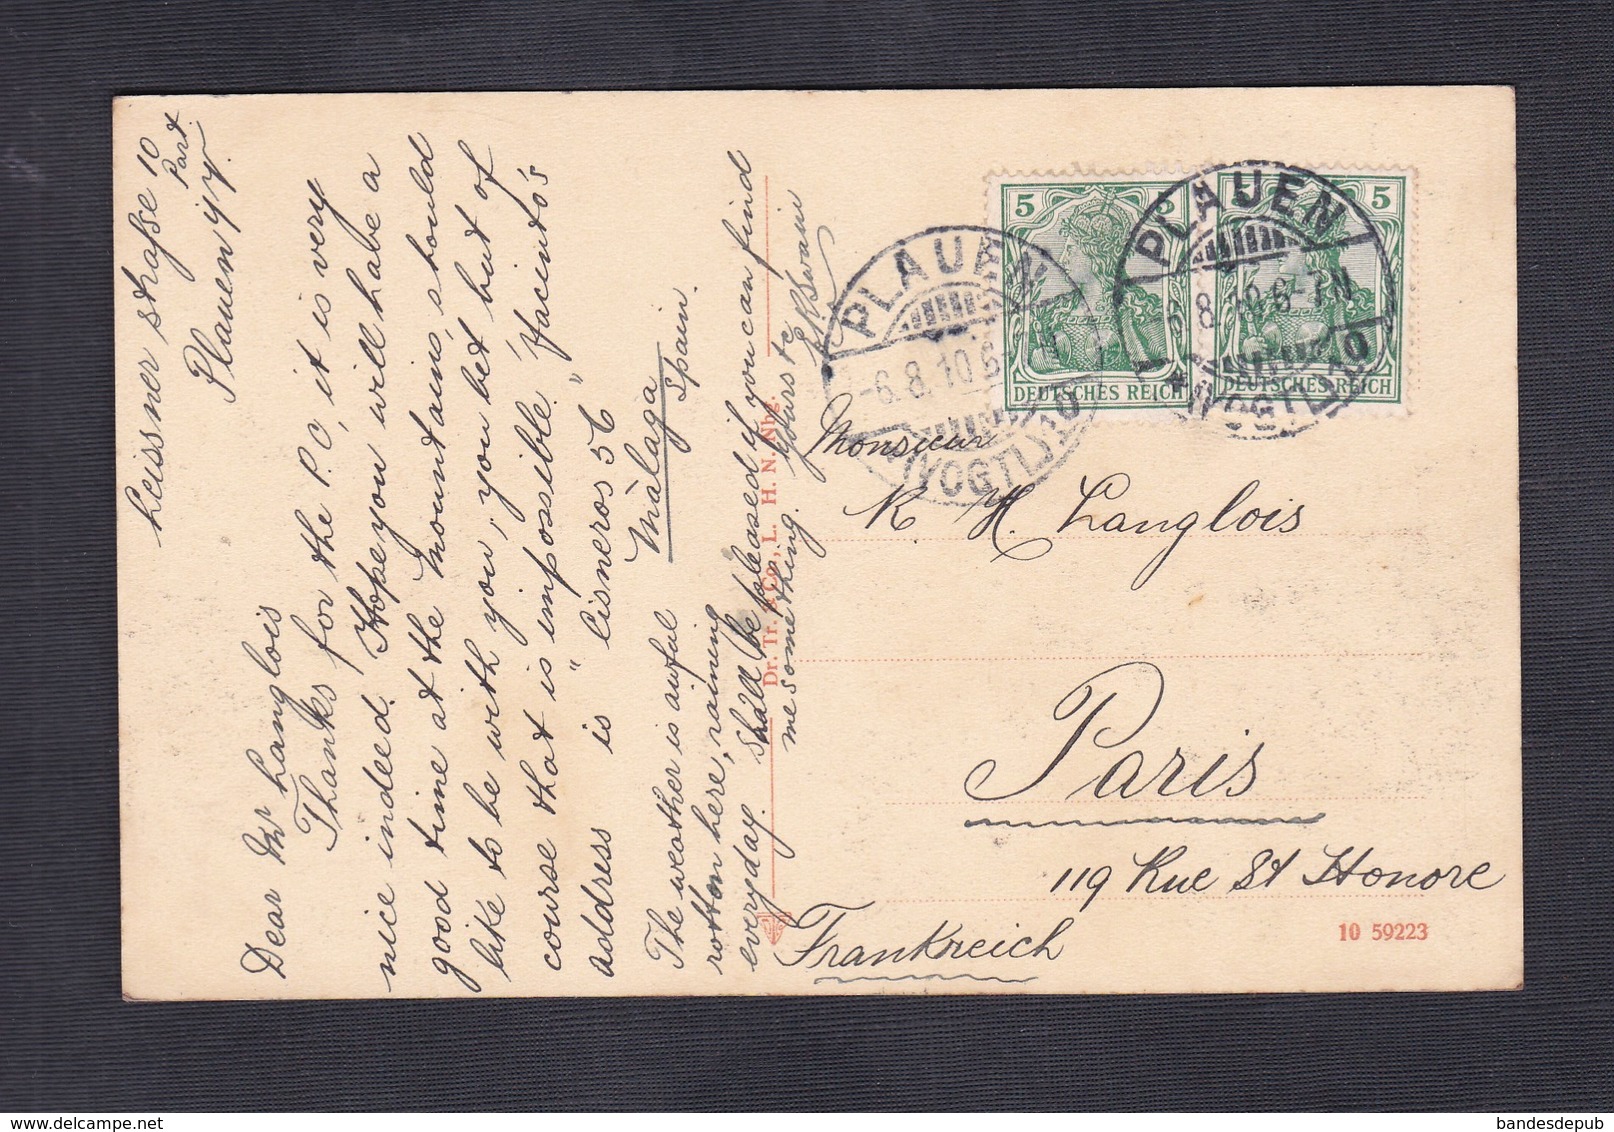 Leissner strasse 10
Part.
Plauen i/V.
Dear Mr Langlois
Thanks for the P.C, it is very
nice indeed. Hope you will have a
good time at the mountains, should
like to be with you, you bet but of
course that is impossible. Jacinto's
address is " Cisneros 56 "
Màlaga
Spain.
The weather is awful
rotten here, raining
everyday. Shall be pleased if you can find
me something. Yours tc
Dr. Tr. & Co., L. H. N. Nbg.
5 5
DEUTSCHES REICH
5
DEUTSCHES REICH
PLAUEN
-6.8.10.6-7N
(VOGTL) 1 o
PLAUEN
6.8.10.6-7N
* (VOGTL) 1 o
Monsieur
R H. Langlois
Paris
119 Rue St Honore
Frankreich
10 59223
bandesdepub - delcampe.net